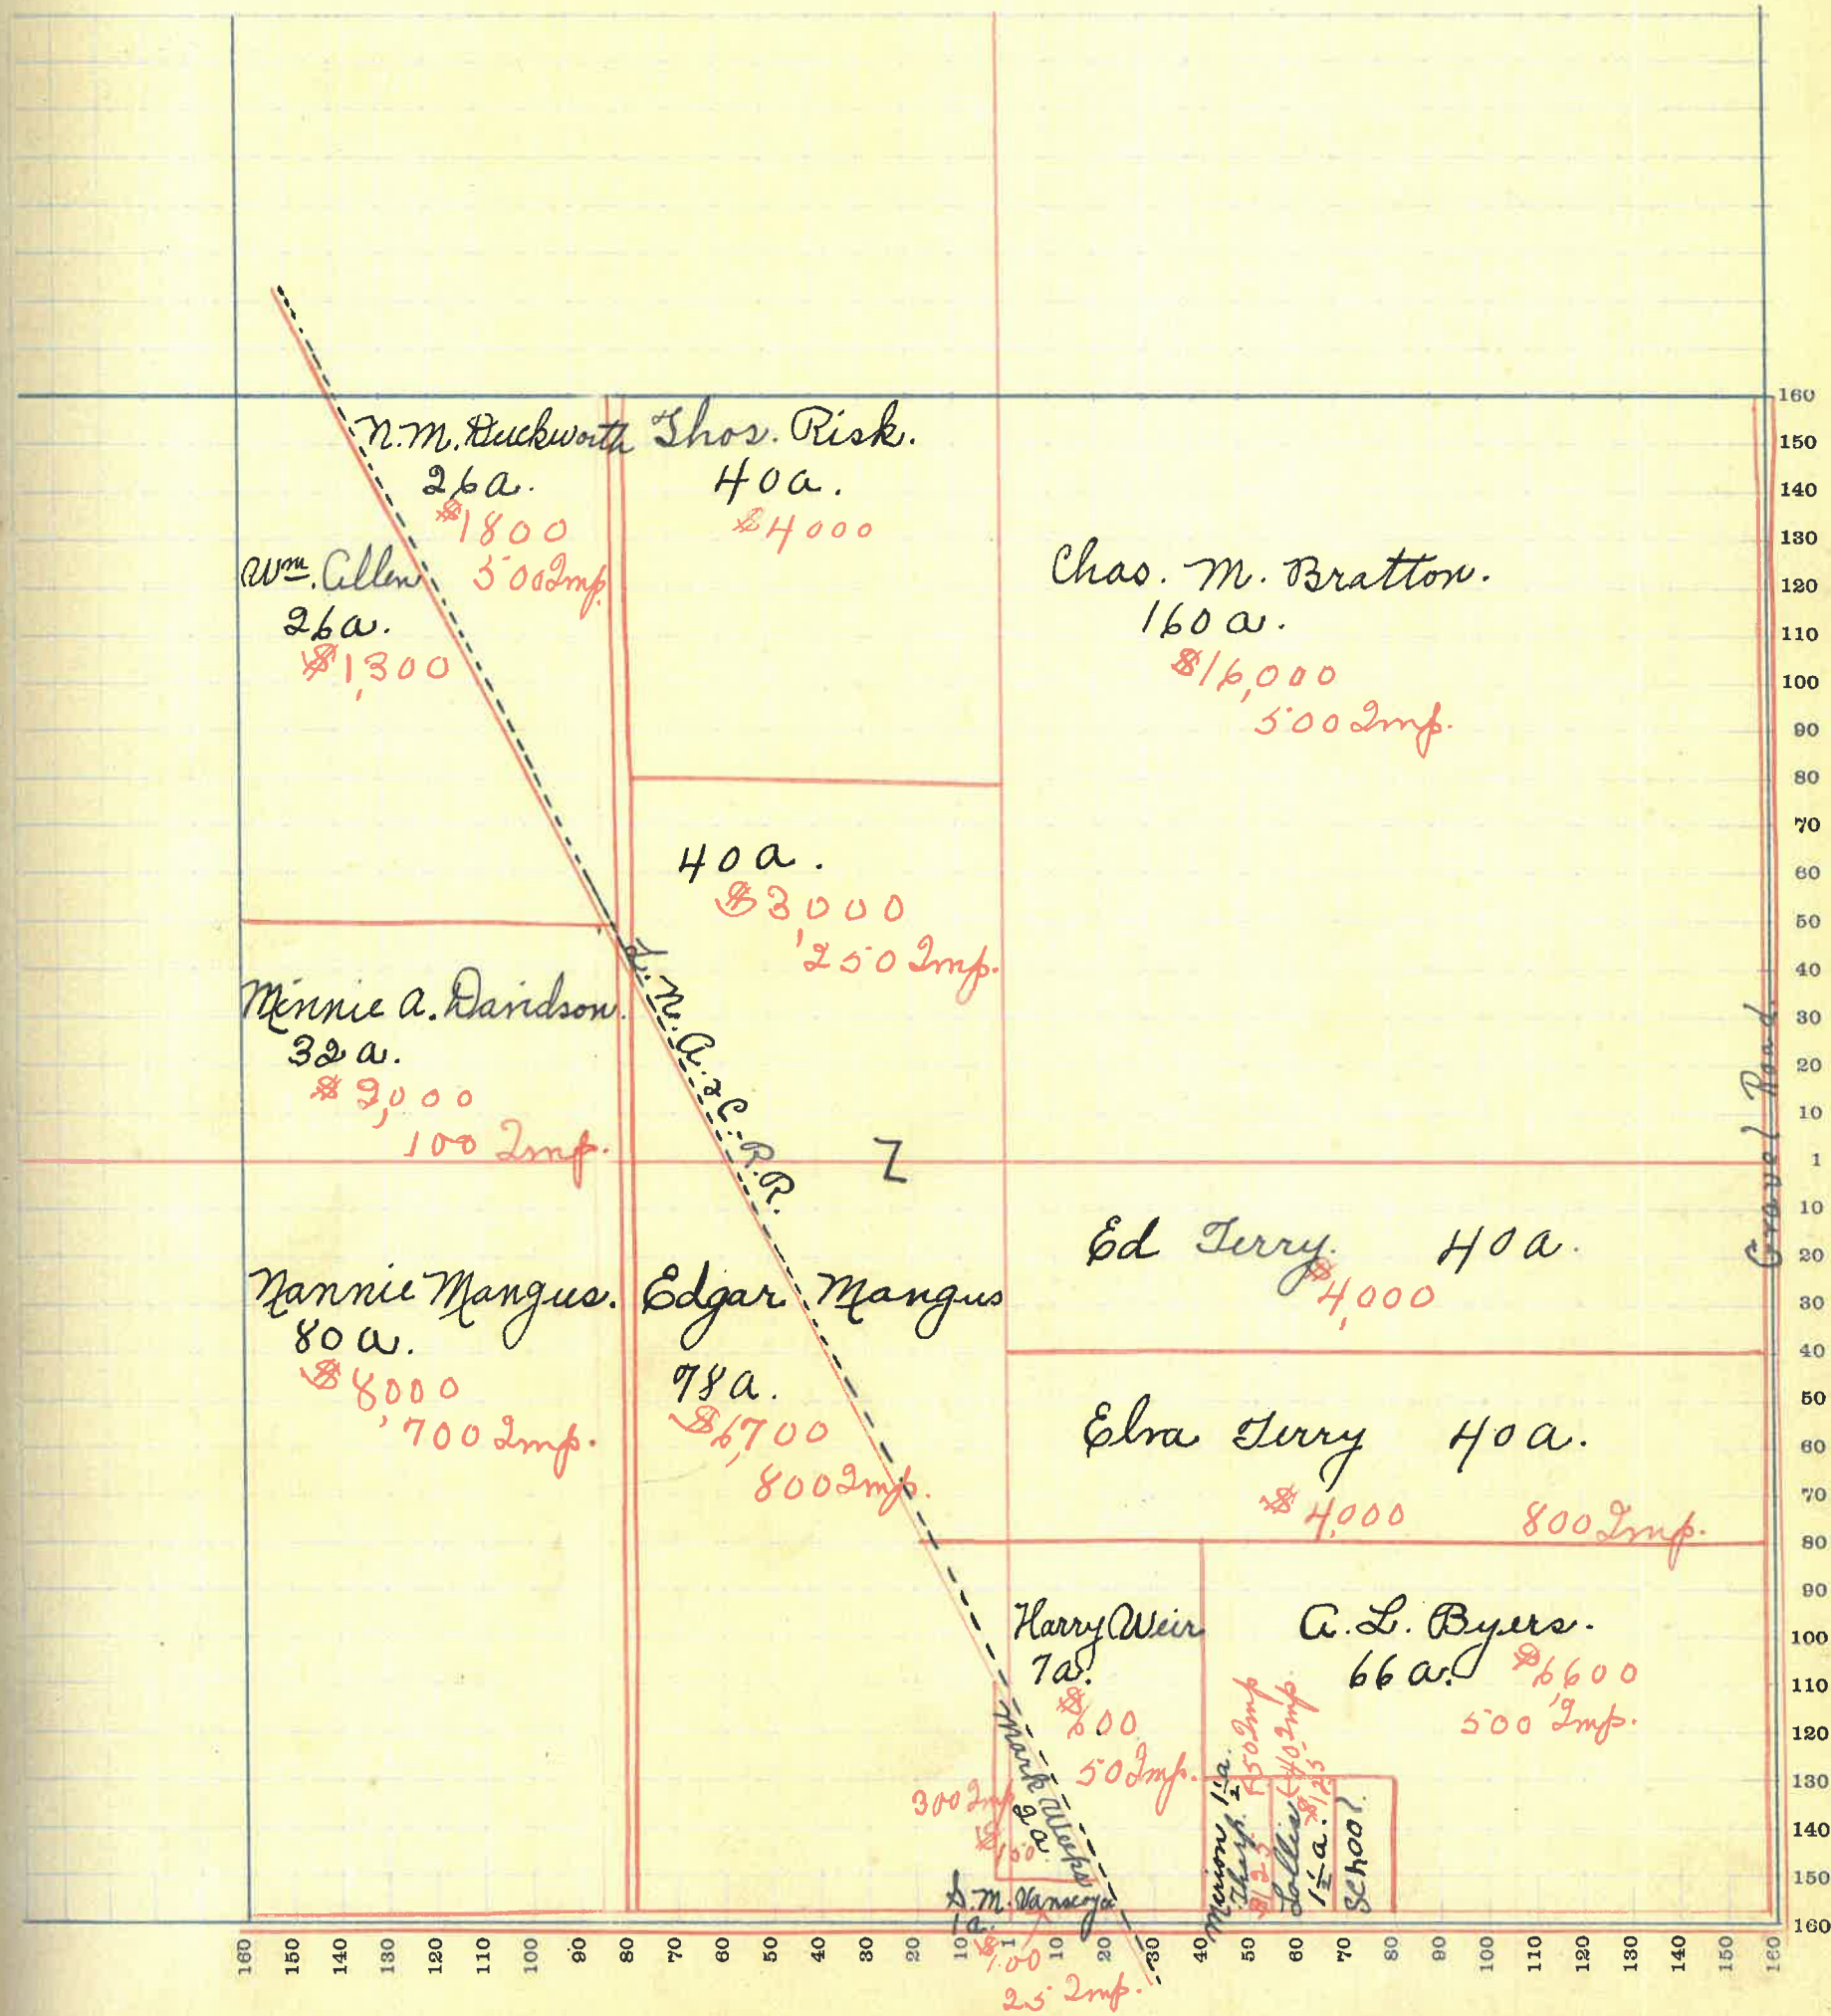 N.M. Duckworth
26a.
$1800
500 Imp.
Thos. Risk.
40a.
$4000
Wm. Allen
26a.
$1,300
Chas. M. Bratton.
160 a.
$16,000
500 Imp.
40a.
$3,000
250 Imp.
Minnie A. Davidson.
32 a.
$2,000
100 Imp.
L. N. A. & C. R. R.
7
Gravel Road.
Ed Terry. 40a.
$4,000
Nannie Mangus.
80 a.
$8,000
700 Imp.
Edgar Mangus
78a.
$6,700
800 Imp.
Elva Terry 40a.
$4,000 800 Imp.
Harry Weir
7a.
$600
50 Imp.
A. L. Byers.
66 a. $6,600
500 Imp.
Mark Weeks
2a
300 Imp
$100
Marion 1½a.
Tharp. 550 Imp
$125
Lollis 440 Imp.
1½ a. $125
School.
S. M. Vanscoyoc
1a.
$100
25 Imp.
160
150
140
130
120
110
100
90
80
70
60
50
40
30
20
10
1
10
20
30
40
50
60
70
80
90
100
110
120
130
140
150
160
160 150 140 130 120 110 100 90 80 70 60 50 40 80 20 10 1 10 20 30 40 50 60 70 80 90 100 110 120 130 140 150 160